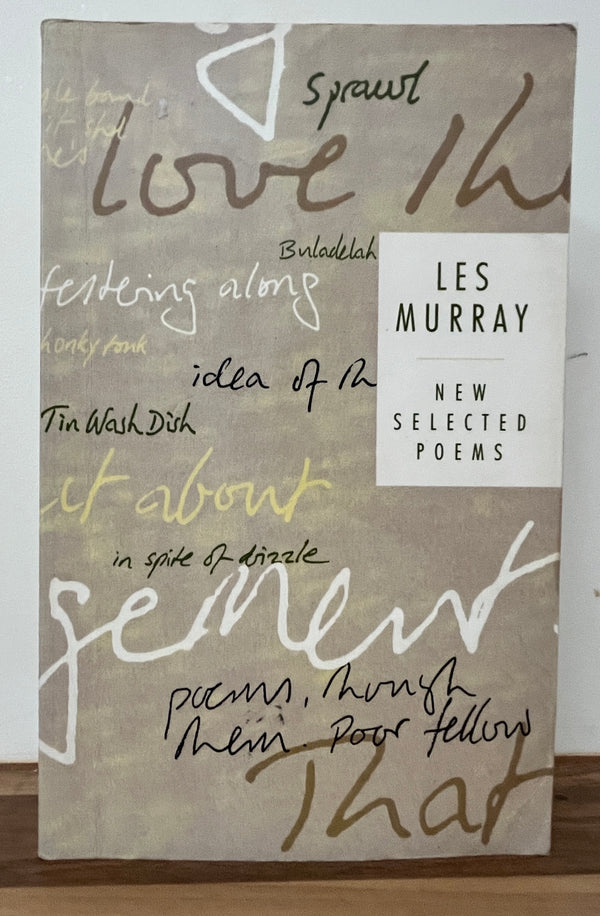 y
sprawl
love the
Buladelah
festering along
honky tonk
idea of th
Tin Wash Dish
it about
in spite of drizzle
gement.
poems, though
them. Poor fellow
That
LES
MURRAY
NEW
SELECTED
POEMS